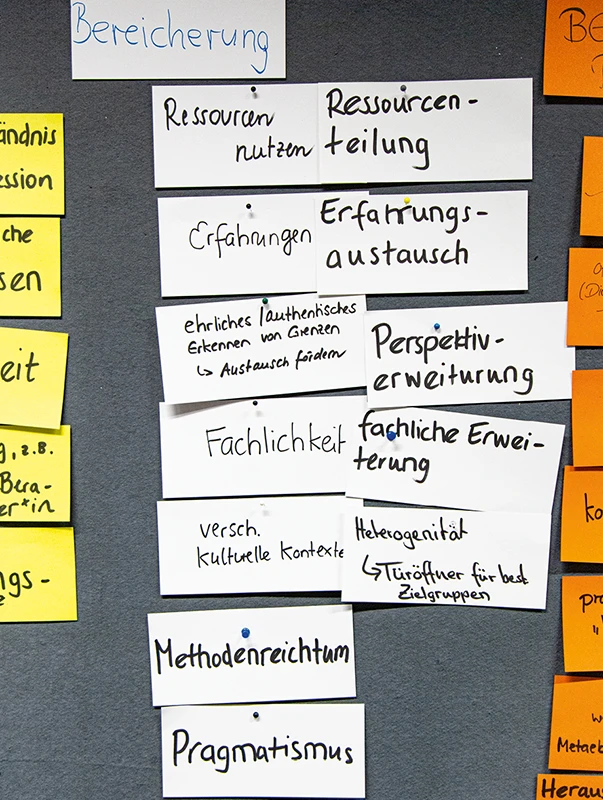 Bereicherung
Ressourcen
nutzen
Ressourcen-
teilung
Erfahrungen
Erfahrungs-
austausch
ehrliches / authentisches
Erkennen von Grenzen
↳ Austausch fördern
Perspektiv-
erweiturung
Fachlichkeit
fachliche Erwei-
terung
versch.
kulturelle Kontexte
Heterogenität
↳ Türöffner für best.
Zielgruppen
Methodenreichtum
Pragmatismus
ändnis
ession
che
sen
eit
g, z.B.
Bera-
er*in
ngs-
BE
ko
pro
w
Metaeb
Heraus